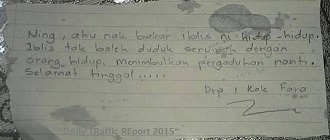 Ning, aku nak bakar iblis ni hidup-hidup.
Iblis tak boleh duduk serumah dengan
orang hidup. menimbulkan pergaduhan nanti.
Selamat tinggal.....
Drp : Kak Fara
Daily Traffic REport 2015